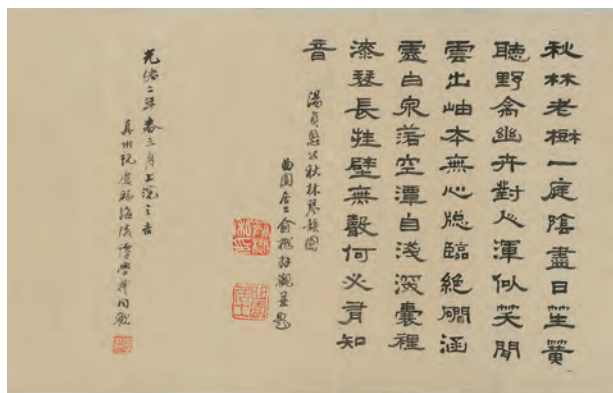 秋林老樹一庭陰盡日笙簧
聽野禽幽卉對人渾似笑閒
雲出岫本無心牕臨絕磵涵
虛白泉落空潭自淺深囊裡
漆琴長挂壁無聲何必有知
音
湯貞愍公秋林琴韻圖
曲園居士俞樾拜觀並題
光緒二年春三月上浣之吉
真州阮慶福海陵譚學同觀